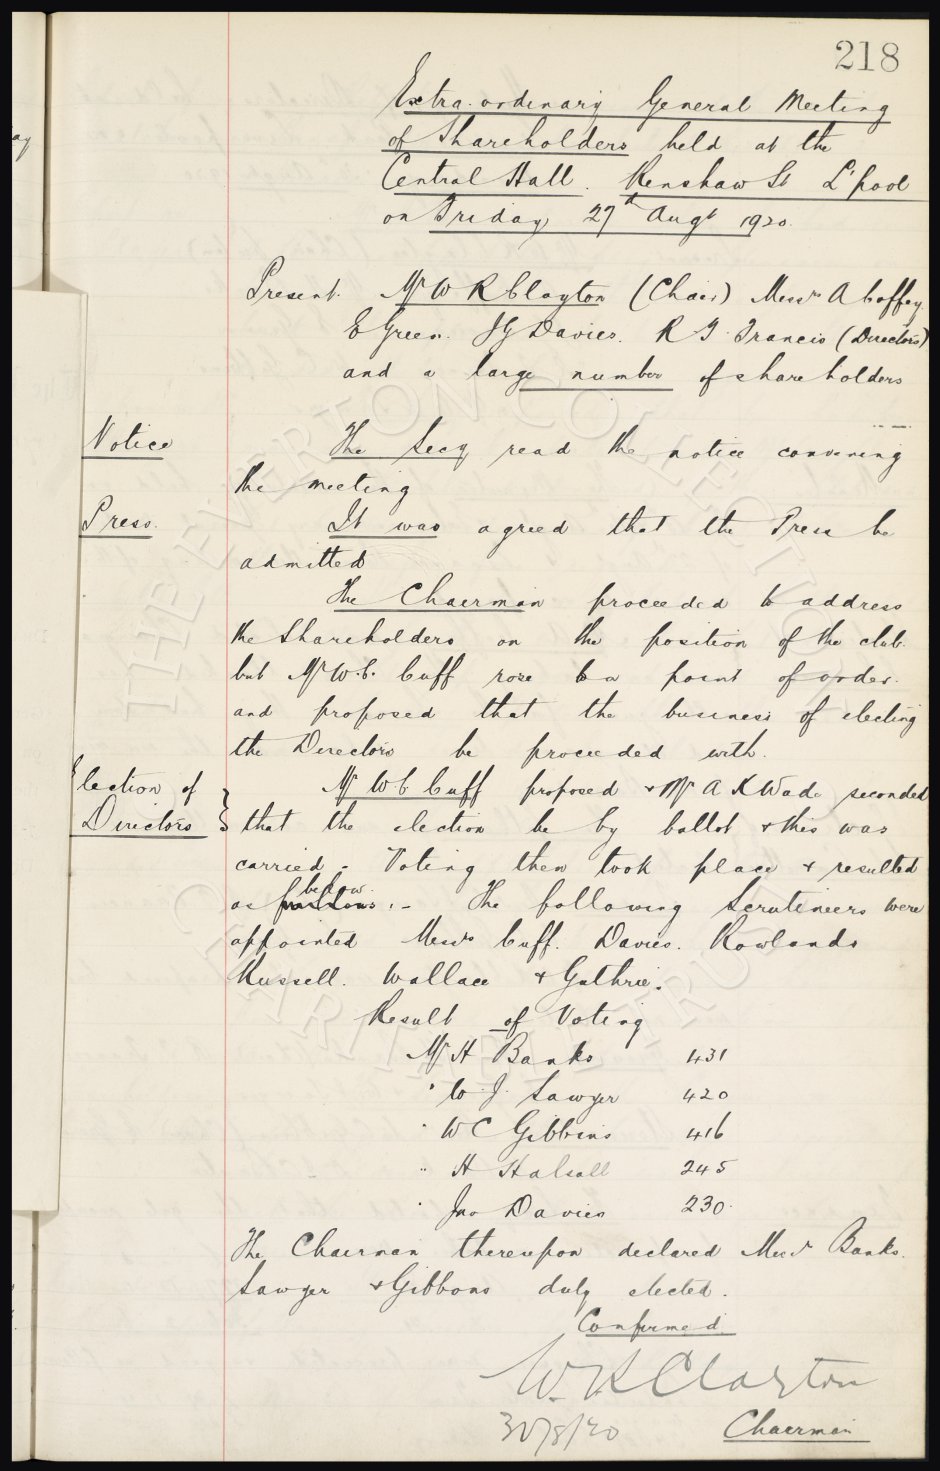 218
Extra-ordinary General Meeting
of Shareholders held at the
Central Hall. Renshaw St L'pool
on Friday 27th Augt 1920.
Present. Mr W R Clayton (Chair) Messrs A Coffey
E Green. J G Davies. R T Francis (Directors)
and a large number of shareholders
Notice
The Secy read the notice convening
the meeting
Press.
It was agreed that the Press be
admitted
The Chairman proceeded to address
the Shareholders on the position of the club.
but Mr W.C. Cuff rose to a point of order.
and proposed that the business of electing
the Directors be proceeded with.
Election of
Directors
Mr W C Cuff proposed & Mr A K Wade seconded
that the election be by ballot & this was
carried. Voting then took place & resulted
below
as :- The following Scrutineers were
appointed Messrs Cuff. Davies. Rowlands
Russell. Wallace & Guthrie.
Result of Voting
Mr H Banks 431
" W. J. Sawyer 420
" W C Gibbins 416
" H Halsall 245
" Jno Davies 230.
The Chairman thereupon declared Messrs Banks.
Sawyer & Gibbons duly elected.
Confirmed
W. R Clayton
30/8/20 Chairman
THE EVERTON COLLECTION
CHARITABLE TRUST